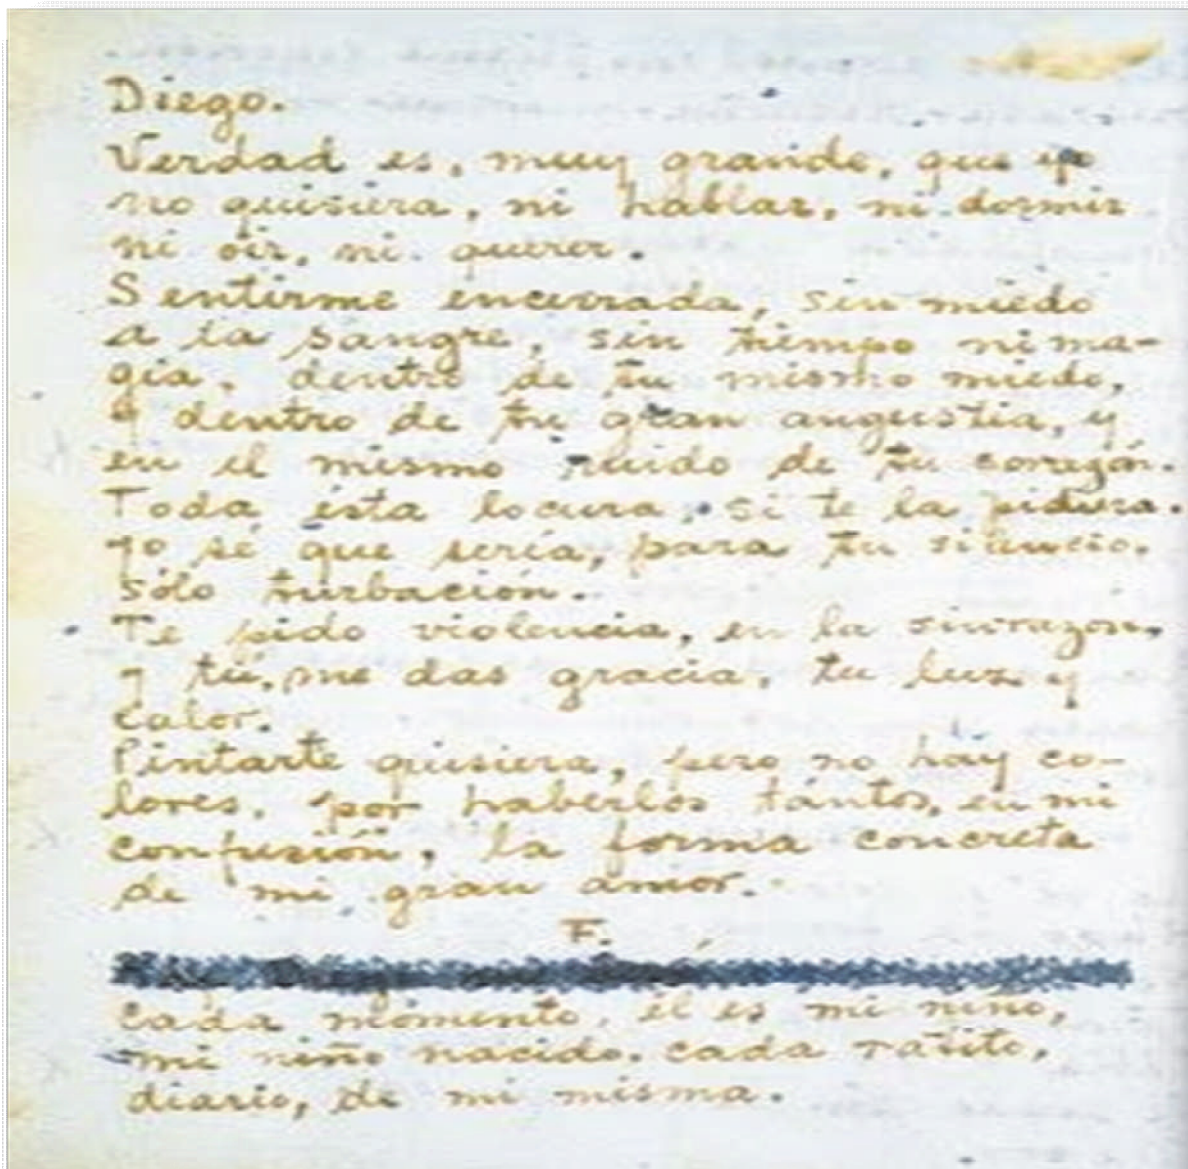 Diego.
Verdad es, muy grande, que yo
no quisiera, ni hablar, ni dormir
ni oír, ni querer.
Sentirme encerrada, sin miedo
a la sangre, sin tiempo ni ma-
gia, dentro de tu mismo miedo,
y dentro de tu gran angustia, y
en el mismo ruido de tu corazón.
Toda ésta locura, si te la pidiera.
yo sé que sería, para tu silencio,
sólo turbación.
Te pido violencia, en la sinrazón,
y tú, me das gracia, tu luz y
calor.
Pintarte quisiera, pero no hay co-
lores, por haberlos tántos, en mi
confusión, la forma concreta
de mi gran amor.
F.
Cada momento, él es mi niño,
mi niño nacido, cada ratito,
diario, de mi misma.